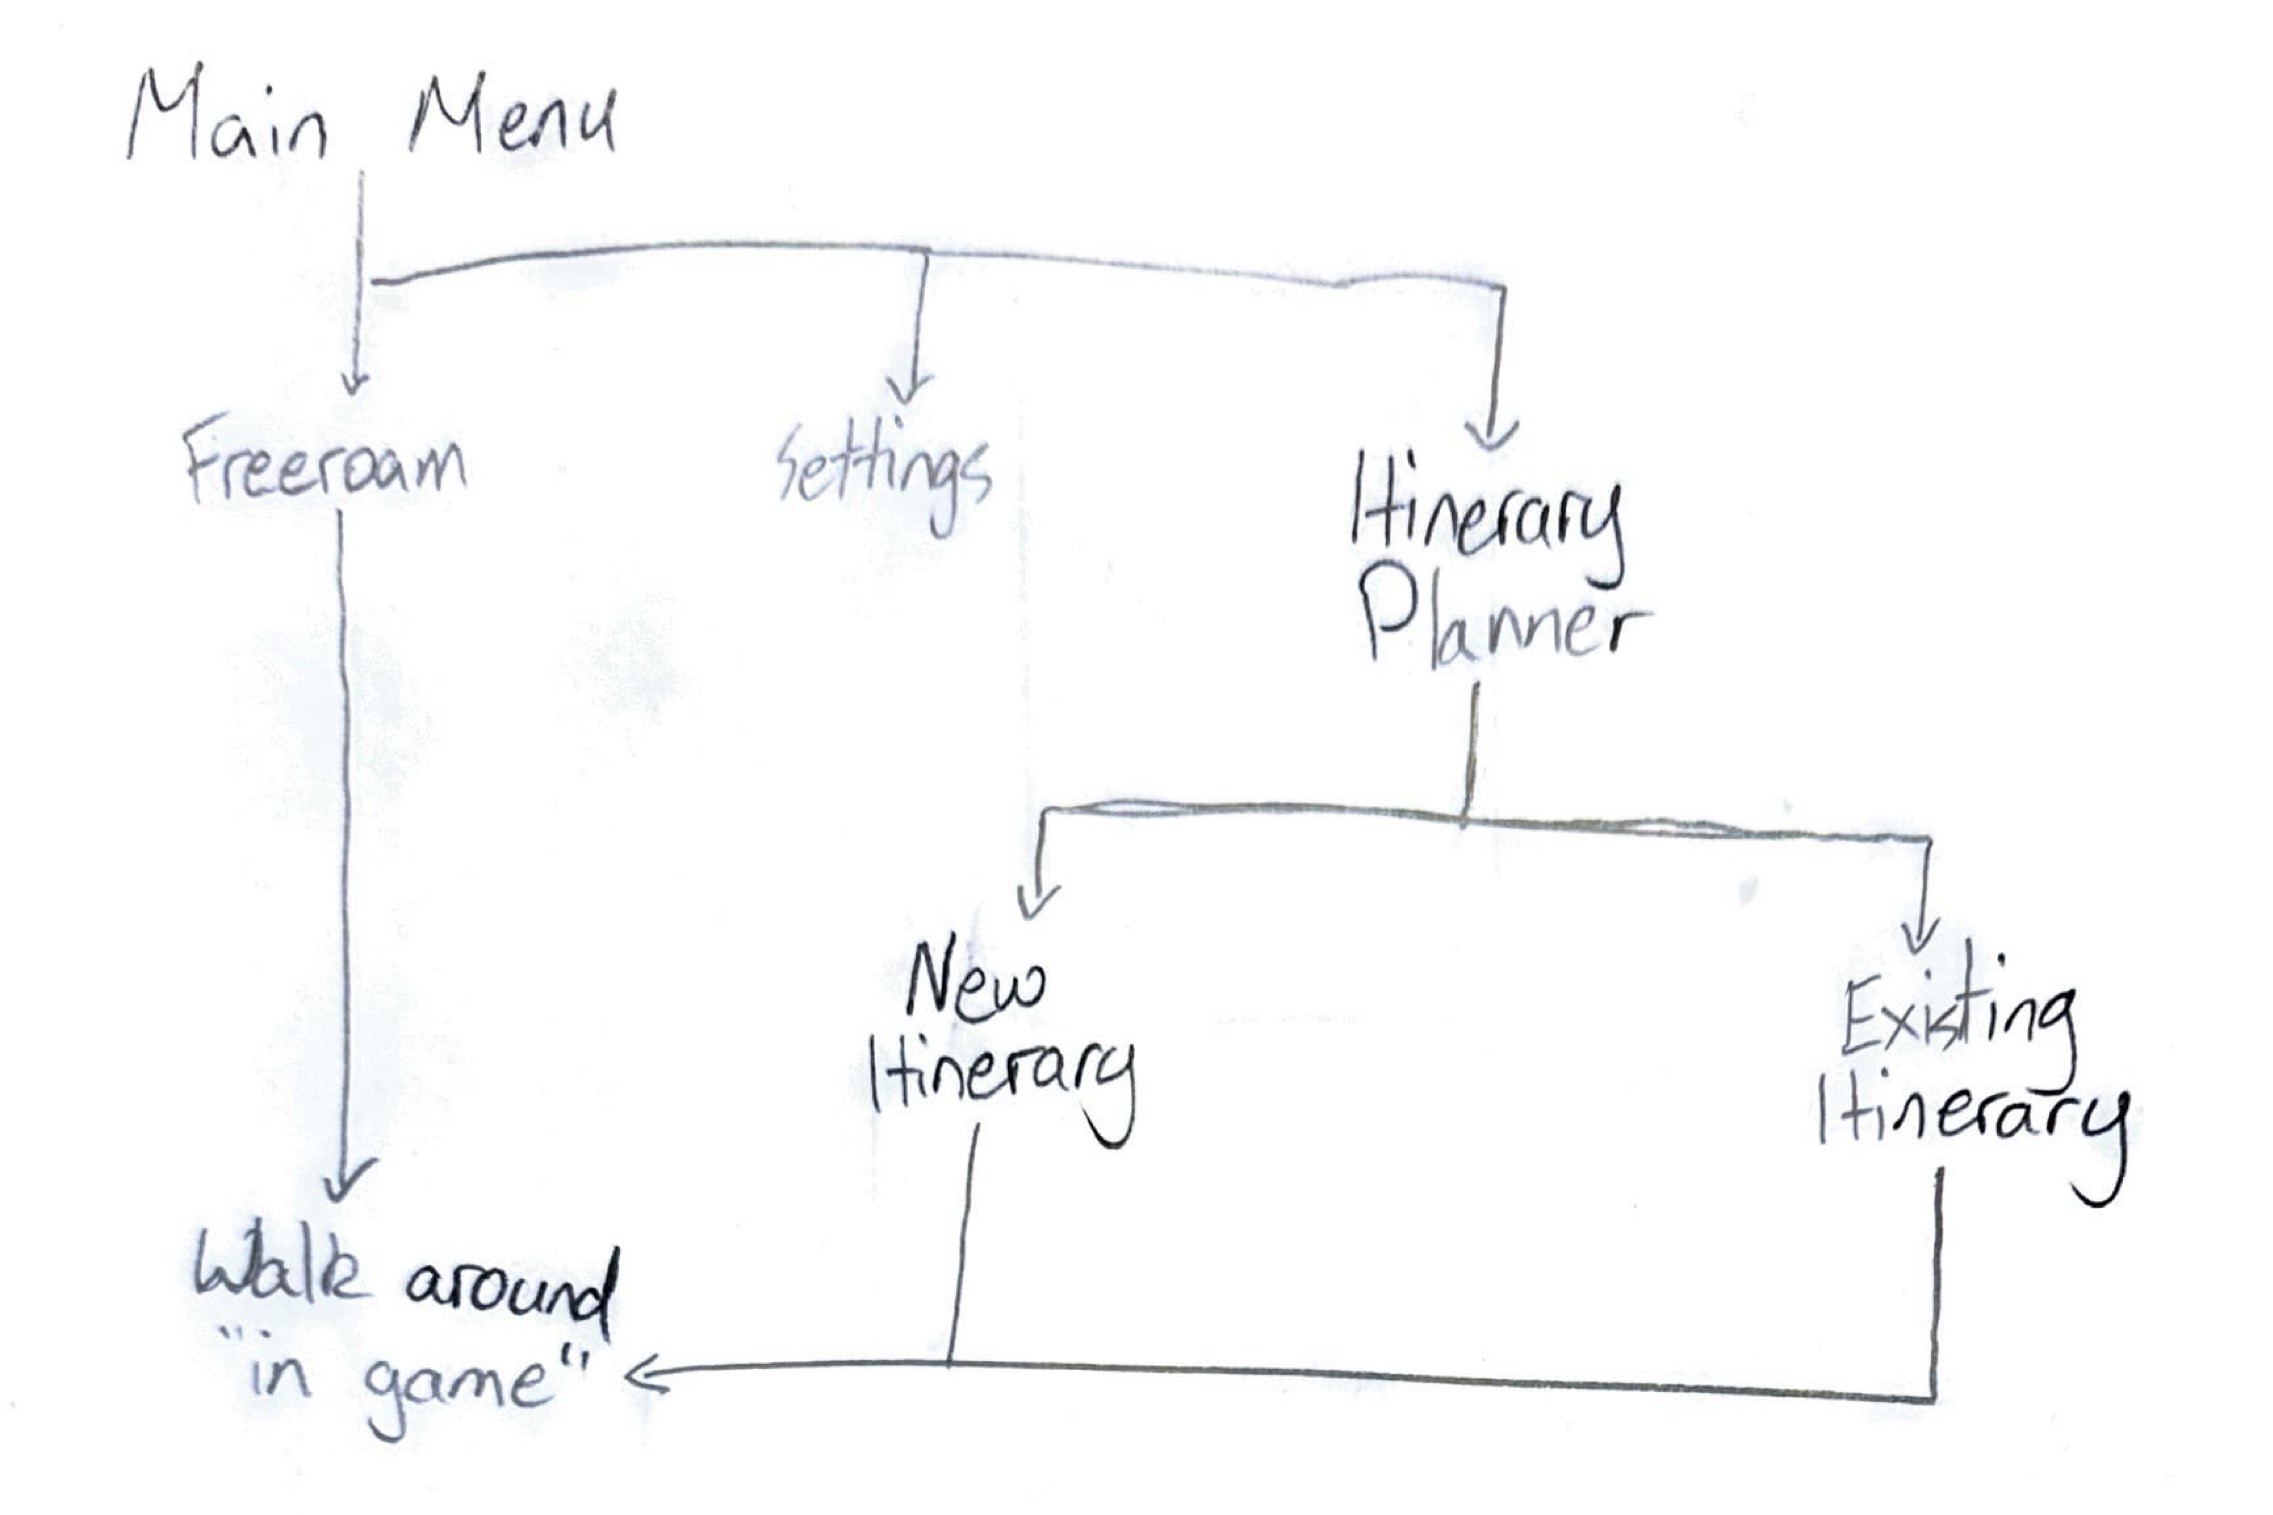 Main Menu
Freeroam
Settings
Itinerary
Planner
New
Itinerary
Existing
Itinerary
Walk around
"in game"